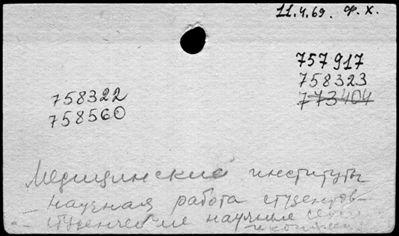 11.4.69. Ф.Х.
757917
758323
773404
758322
758560
Медицинские институты
научная работа студентов-
студенческие научные